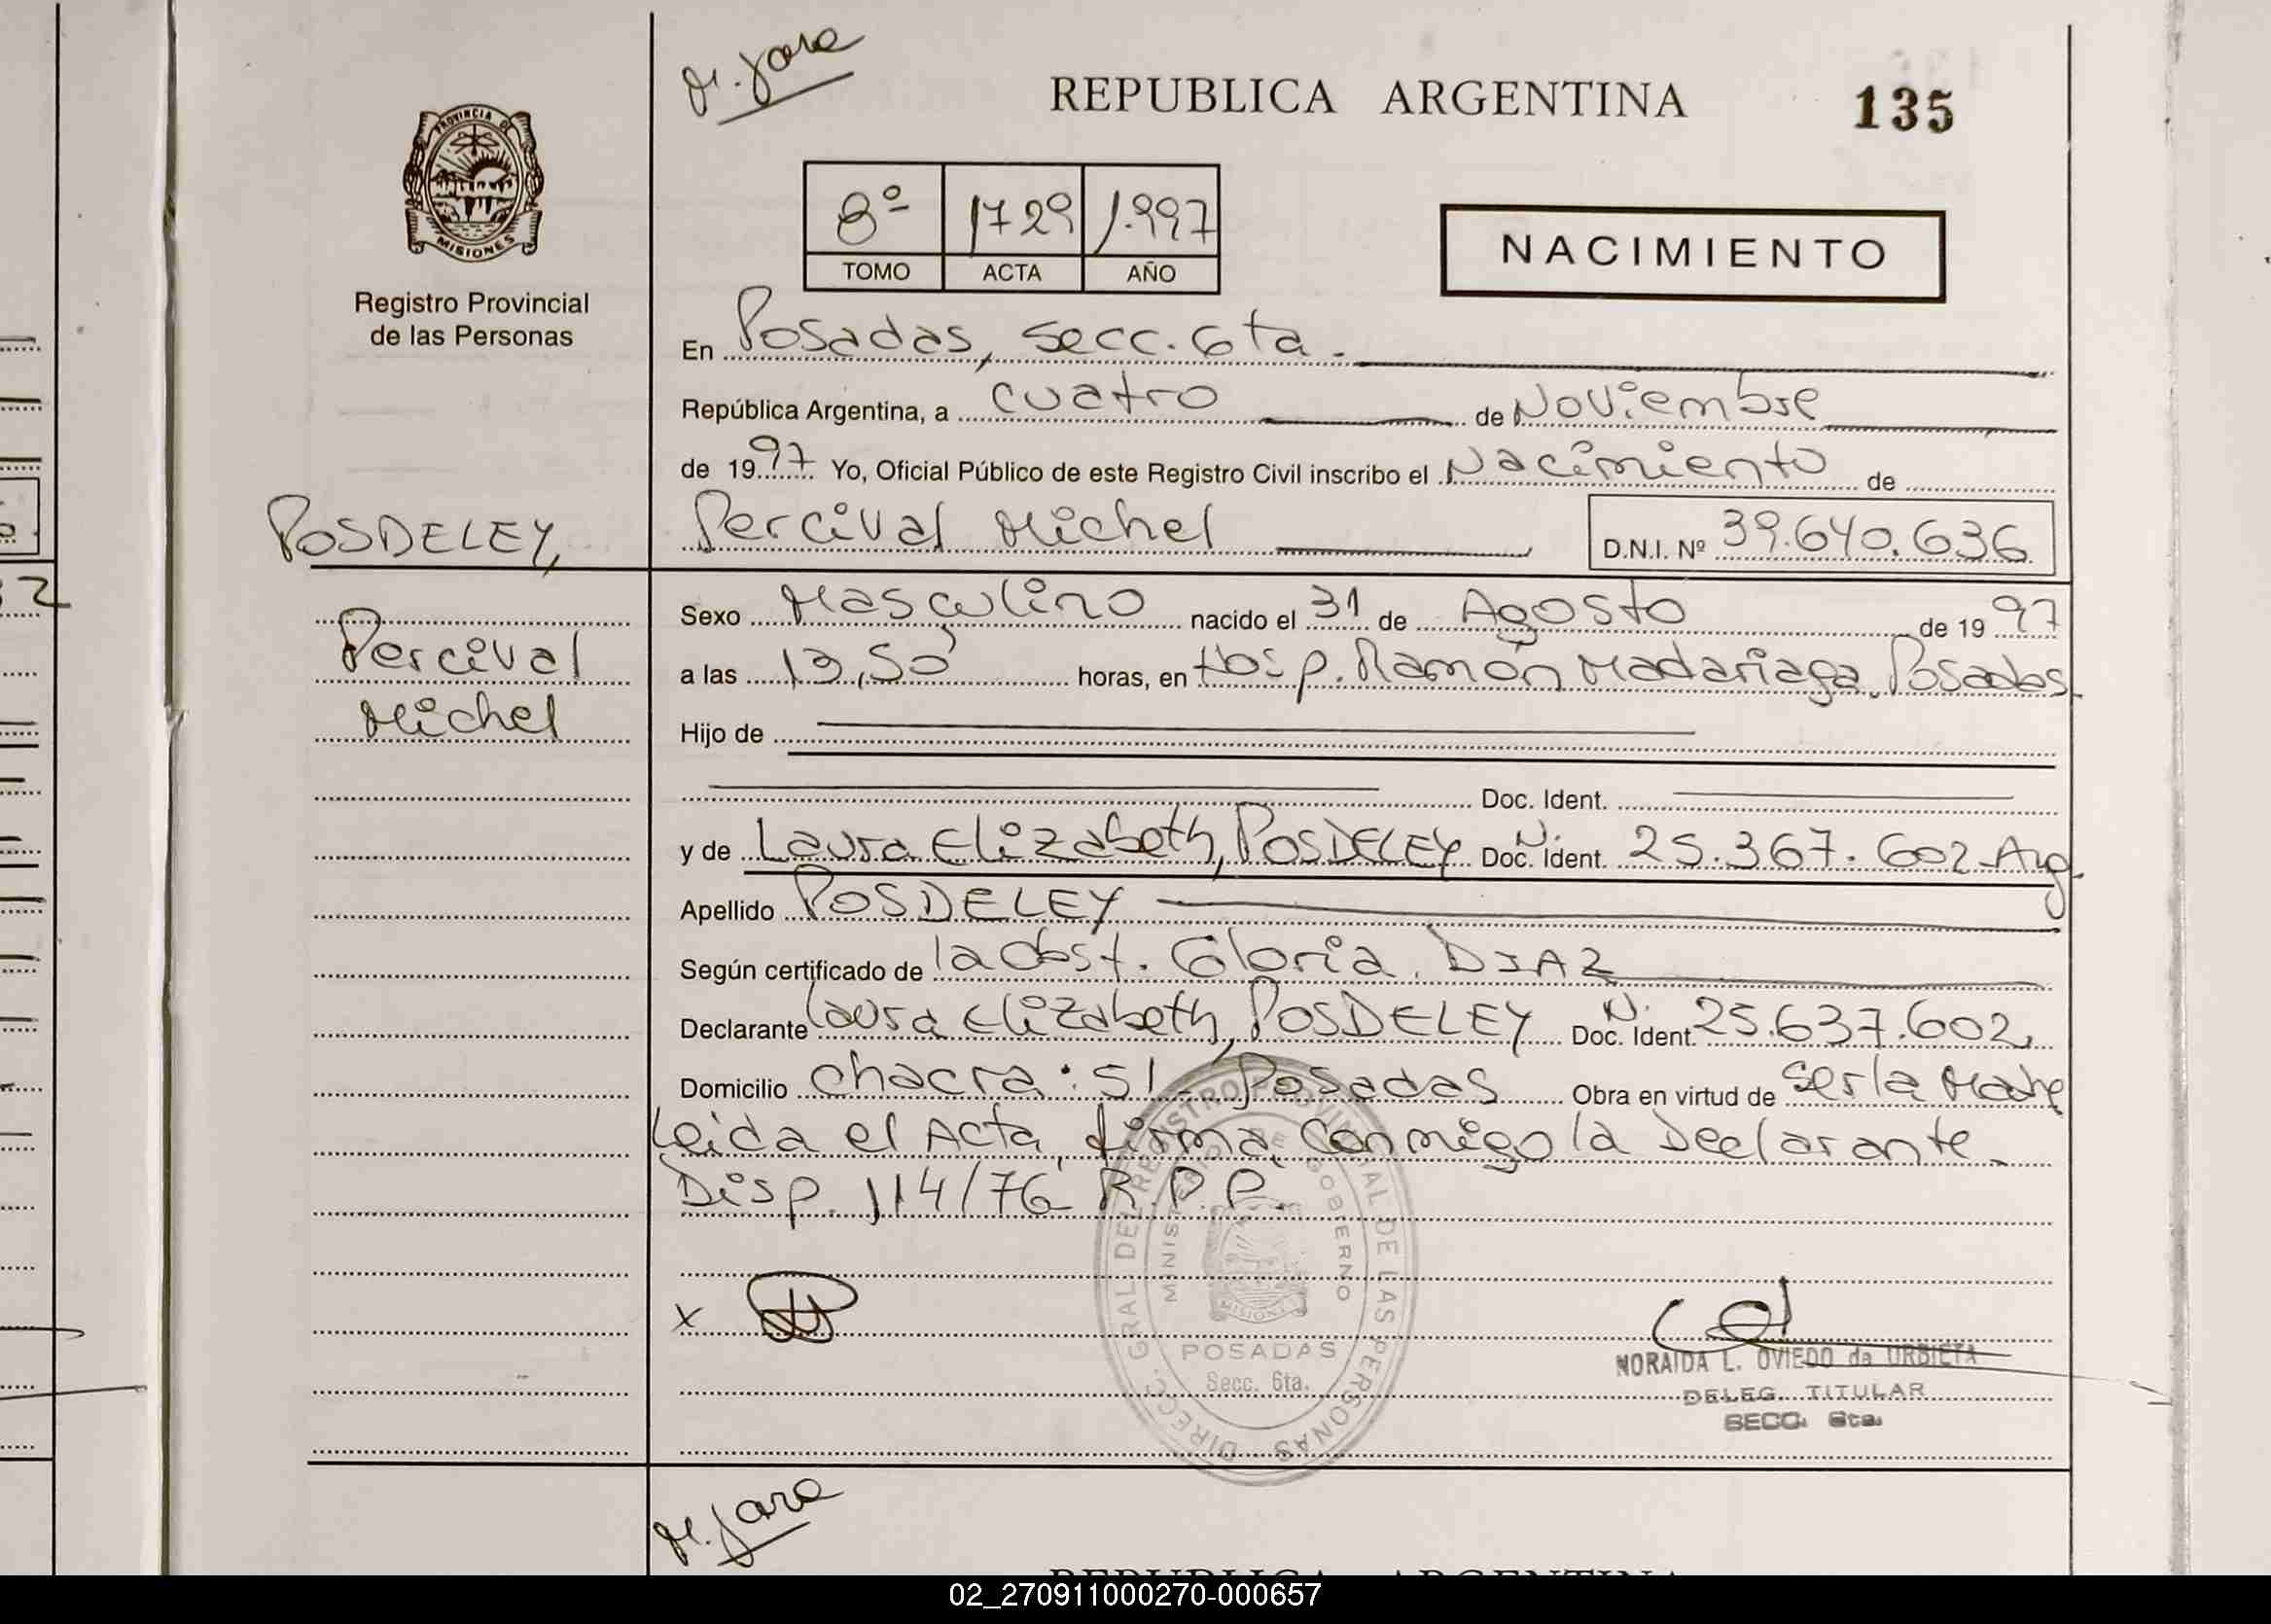 M. Jara
REPUBLICA ARGENTINA
135
PROVINCIA DE
MISIONES
Registro Provincial
de las Personas
8º 1729 1.997
TOMO ACTA AÑO
NACIMIENTO
En Posadas, secc. 6ta.
República Argentina, a cuatro de Noviembre
de 1997 Yo, Oficial Público de este Registro Civil inscribo el Nacimiento de
POSDELEY,
Percival Michel D.N.I. Nº 39.640.636
Percival
Michel
Sexo Masculino nacido el 31 de Agosto de 1997
a las 13,50 horas, en Hosp. Ramón Madariaga, Posadas
Hijo de
Doc. Ident.
y de Laura Elizabeth, POSDELEY Doc. Ident. N. 25.367.602-Arg
Apellido POSDELEY
Según certificado de la Obst. Gloria. DIAZ
Declarante Laura Elizabeth, POSDELEY Doc. Ident. N. 25.637.602,
Domicilio chacra: 51 - Posadas Obra en virtud de ser la Madre
Leida el Acta, firma conmigo la Declarante.
Disp. 114/76 R.P.P.
x
DIRECC. GRAL. DEL REGISTRO PROVINCIAL DE LAS PERSONAS
MINISTERIO DE GOBIERNO
MISIONES
POSADAS
Secc. 6ta.
NORAIDA L. OVIEDO de URBIETA
DELEG. TITULAR
SECC. 6ta.
M. Jara
REPUBLICA ARGENTINA
02_270911000270-000657